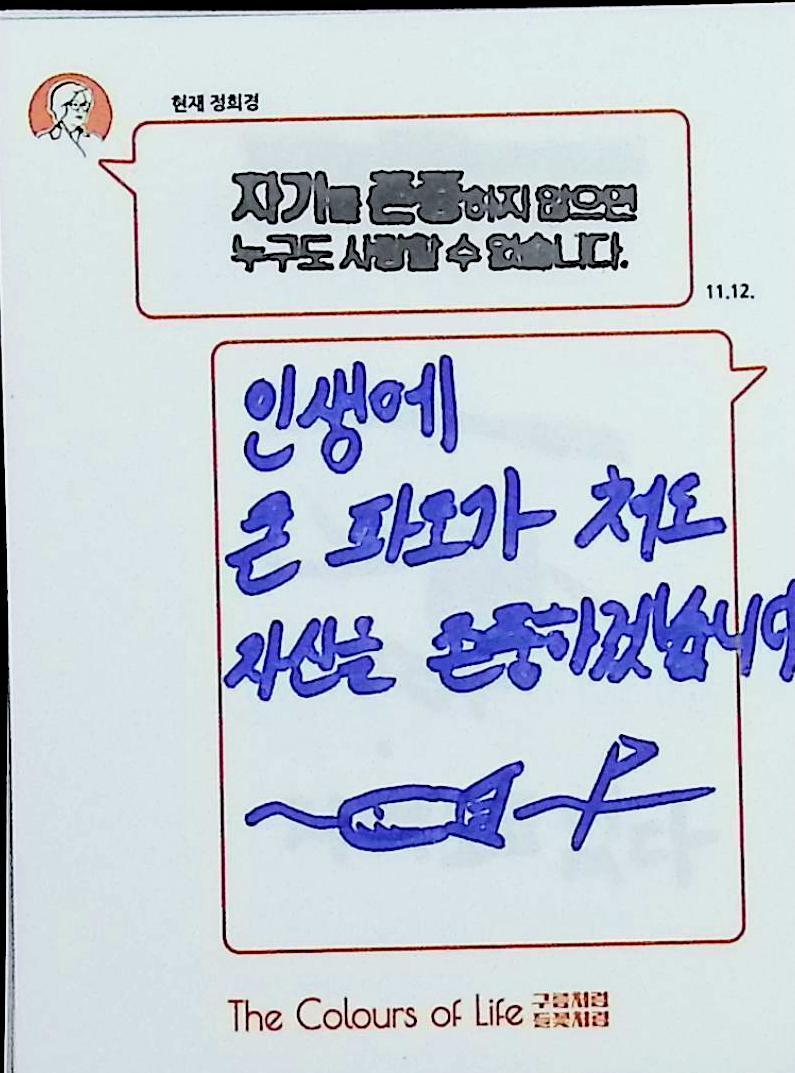 현재 정희경
자기를 존중하지 않으면
누구도 사랑할 수 없습니다.
11.12.
인생에
큰 파도가 쳐도
자신을 존중하겠습니다
The Colours of Life 구름처럼
들꽃처럼